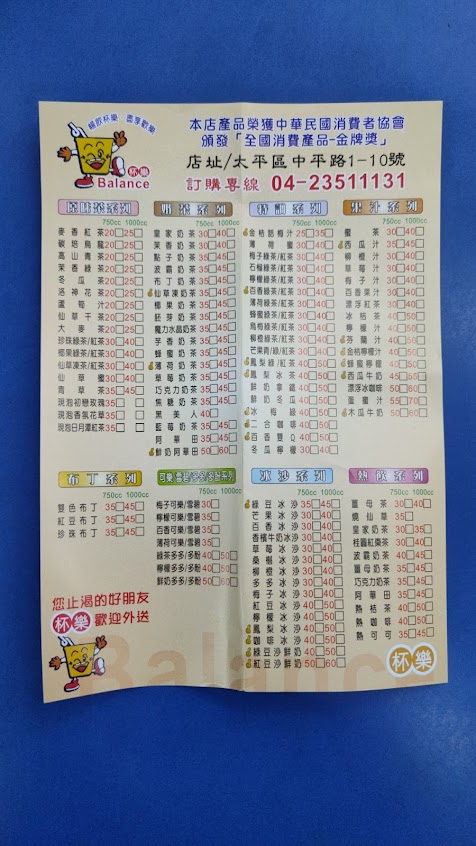 暢飲杯樂 盡享歡樂
杯樂
Balance
本店產品榮獲中華民國消費者協會
頒發「全國消費產品-金牌獎」
店址/太平區中平路1-10號
訂購專線 04-23511131
原味茶系列
750cc 1000cc
麥香紅茶20□25□
碳培烏龍20□25□
高山青茶20□25□
茉香綠茶20□25□
冬瓜茶20□25□
洛神花茶20□25□
蘆筍汁20□25□
仙草干茶20□25□
大麥茶20□25□
珍珠綠茶/紅茶30□40□
椰果綠茶/紅茶30□40□
仙草凍茶/紅茶30□40□
仙草蜜30□40□
青草茶35□45□
現泡初戀玫瑰35□ □
現泡香氛花草35□ □
現泡日月潭紅茶35□ □
奶茶系列
750cc 1000cc
皇家奶茶30□40□
茉香奶茶30□40□
點子奶茶35□45□
波霸奶茶35□45□
布丁奶茶35□45□
仙草凍奶茶35□45□
胚芽奶茶35□45□
魔力水晶奶茶35□45□
芋香奶茶35□45□
蜂蜜奶茶35□45□
薄荷奶茶35□45□
草莓奶茶35□45□
巧克力奶茶35□45□
焦糖奶茶35□45□
黑美人40□
藍莓奶茶35□45□
阿華田35□45□
鮮奶阿華田50□60□
特調系列
750cc 1000cc
金桔話梅汁25□35□
薄荷蜜30□40□
梅子綠茶/紅茶30□40□
石榴綠茶/紅茶30□40□
檸檬綠茶/紅茶30□40□
百香綠茶/紅茶30□40□
薄荷綠茶/紅茶30□40□
蜂蜜綠茶/紅茶30□40□
烏梅綠茶/紅茶30□40□
柳橙綠茶/紅茶30□40□
芒果青/綠/紅茶30□40□
鳳梨綠/紅茶30□40□
鳳梨冰茶40□50□
鮮奶拿鐵40□50□
鮮奶冬瓜40□50□
冰梅綠40□50□
二合咖啡40□50□
百香雙Q40□50□
冬瓜檸檬30□40□
果汁系列
750cc 1000cc
蜜茶30□40□
西瓜汁35□45□
柳橙汁35□45□
草莓汁35□45□
梅子汁30□40□
百香果汁30□40□
漂浮紅茶30□40□
冰桔茶40□50□
檸檬汁40□50□
芬蘭汁40□50□
金桔檸檬汁40□50□
蜂蜜檸檬40□50□
西瓜牛奶45□55□
漂浮冰咖啡50□60□
蘆蜜汁55□70□
木瓜牛奶50□60□
布丁系列
750cc 1000cc
雙色布丁35□45□
紅豆布丁35□45□
珍珠布丁35□45□
可樂.雪碧.多多.多酚系列
750cc 1000cc
梅子可樂/雪碧30□
檸檬可樂/雪碧35□
百香可樂/雪碧35□
薄荷可樂/雪碧35□
綠茶多多/多酚40□50□
檸檬多多/多酚40□50□
鮮奶多多/多酚50□60□
冰沙系列
750cc 1000cc
綠豆冰沙35□45□
芒果冰沙30□40□
百香冰沙30□40□
香檳牛奶冰沙30□40□
草莓冰沙30□40□
桑椹冰沙30□40□
柳橙冰沙30□40□
多多冰沙30□40□
梅子冰沙30□40□
紅豆冰沙40□50□
檸檬冰沙40□50□
鳳梨冰沙40□50□
咖啡冰沙40□50□
綠豆沙鮮奶40□50□
紅豆沙鮮奶40□50□
熱飲系列
750cc 1000cc
薑母茶30□40□
燒仙草35□
皇家奶茶30□35□
桂圓紅棗茶30□40□
波霸奶茶30□40□
薑母奶茶35□45□
巧克力奶茶35□45□
阿華田35□45□
熱桔茶40□50□
熱咖啡40□50□
熱可可35□45□
您止渴的好朋友
杯樂 歡迎外送
杯樂
Balance
杯樂